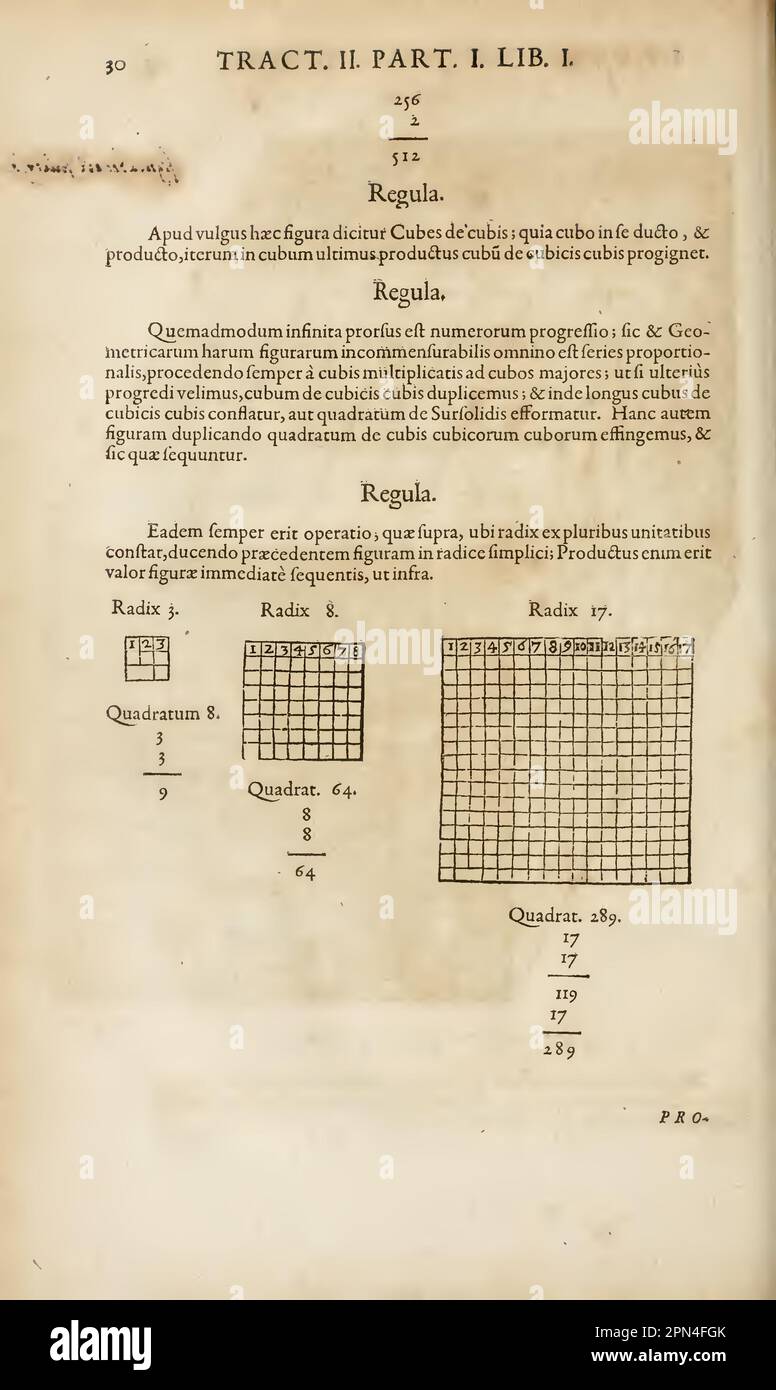 30 TRACT. II. PART. I. LIB. I.
256
2
512
Regula.
Apud vulgus hæc figura dicitur Cubes de cubis; quia cubo in ſe ducto, &
producto, iterum in cubum ultimus productus cubũ de cubicis cubis progignet.
Regula.
Quemadmodum infinita prorſus eſt numerorum progreſſio; ſic & Geo-
metricarum harum figurarum incommenſurabilis omnino eſt ſeries proportio-
nalis, procedendo ſemper à cubis multiplicatis ad cubos majores; ut ſi ulteriùs
progredi velimus, cubum de cubicis cubis duplicemus; & inde longus cubus de
cubicis cubis conflatur, aut quadratum de Surſolidis efformatur. Hanc autem
figuram duplicando quadratum de cubis cubicorum cuborum effingemus, &
ſic quæ ſequuntur.
Regula.
Eadem ſemper erit operatio; quæ ſupra, ubi radix ex pluribus unitatibus
conſtat, ducendo præcedentem figuram in radice ſimplici; Productus enim erit
valor figuræ immediatè ſequentis, ut infra.
Radix 3. Radix 8. Radix 17.
1 2 3
1 2 3 4 5 6 7 8
1 2 3 4 5 6 7 8 9 10 11 12 13 14 15 16 17
Quadratum 8.
3
3
9
Quadrat. 64.
8
8
64
Quadrat. 289.
17
17
119
17
289
PRO-
alamy
alamy
alamy
alamy
Image ID: 2PN4FGK
www.alamy.com